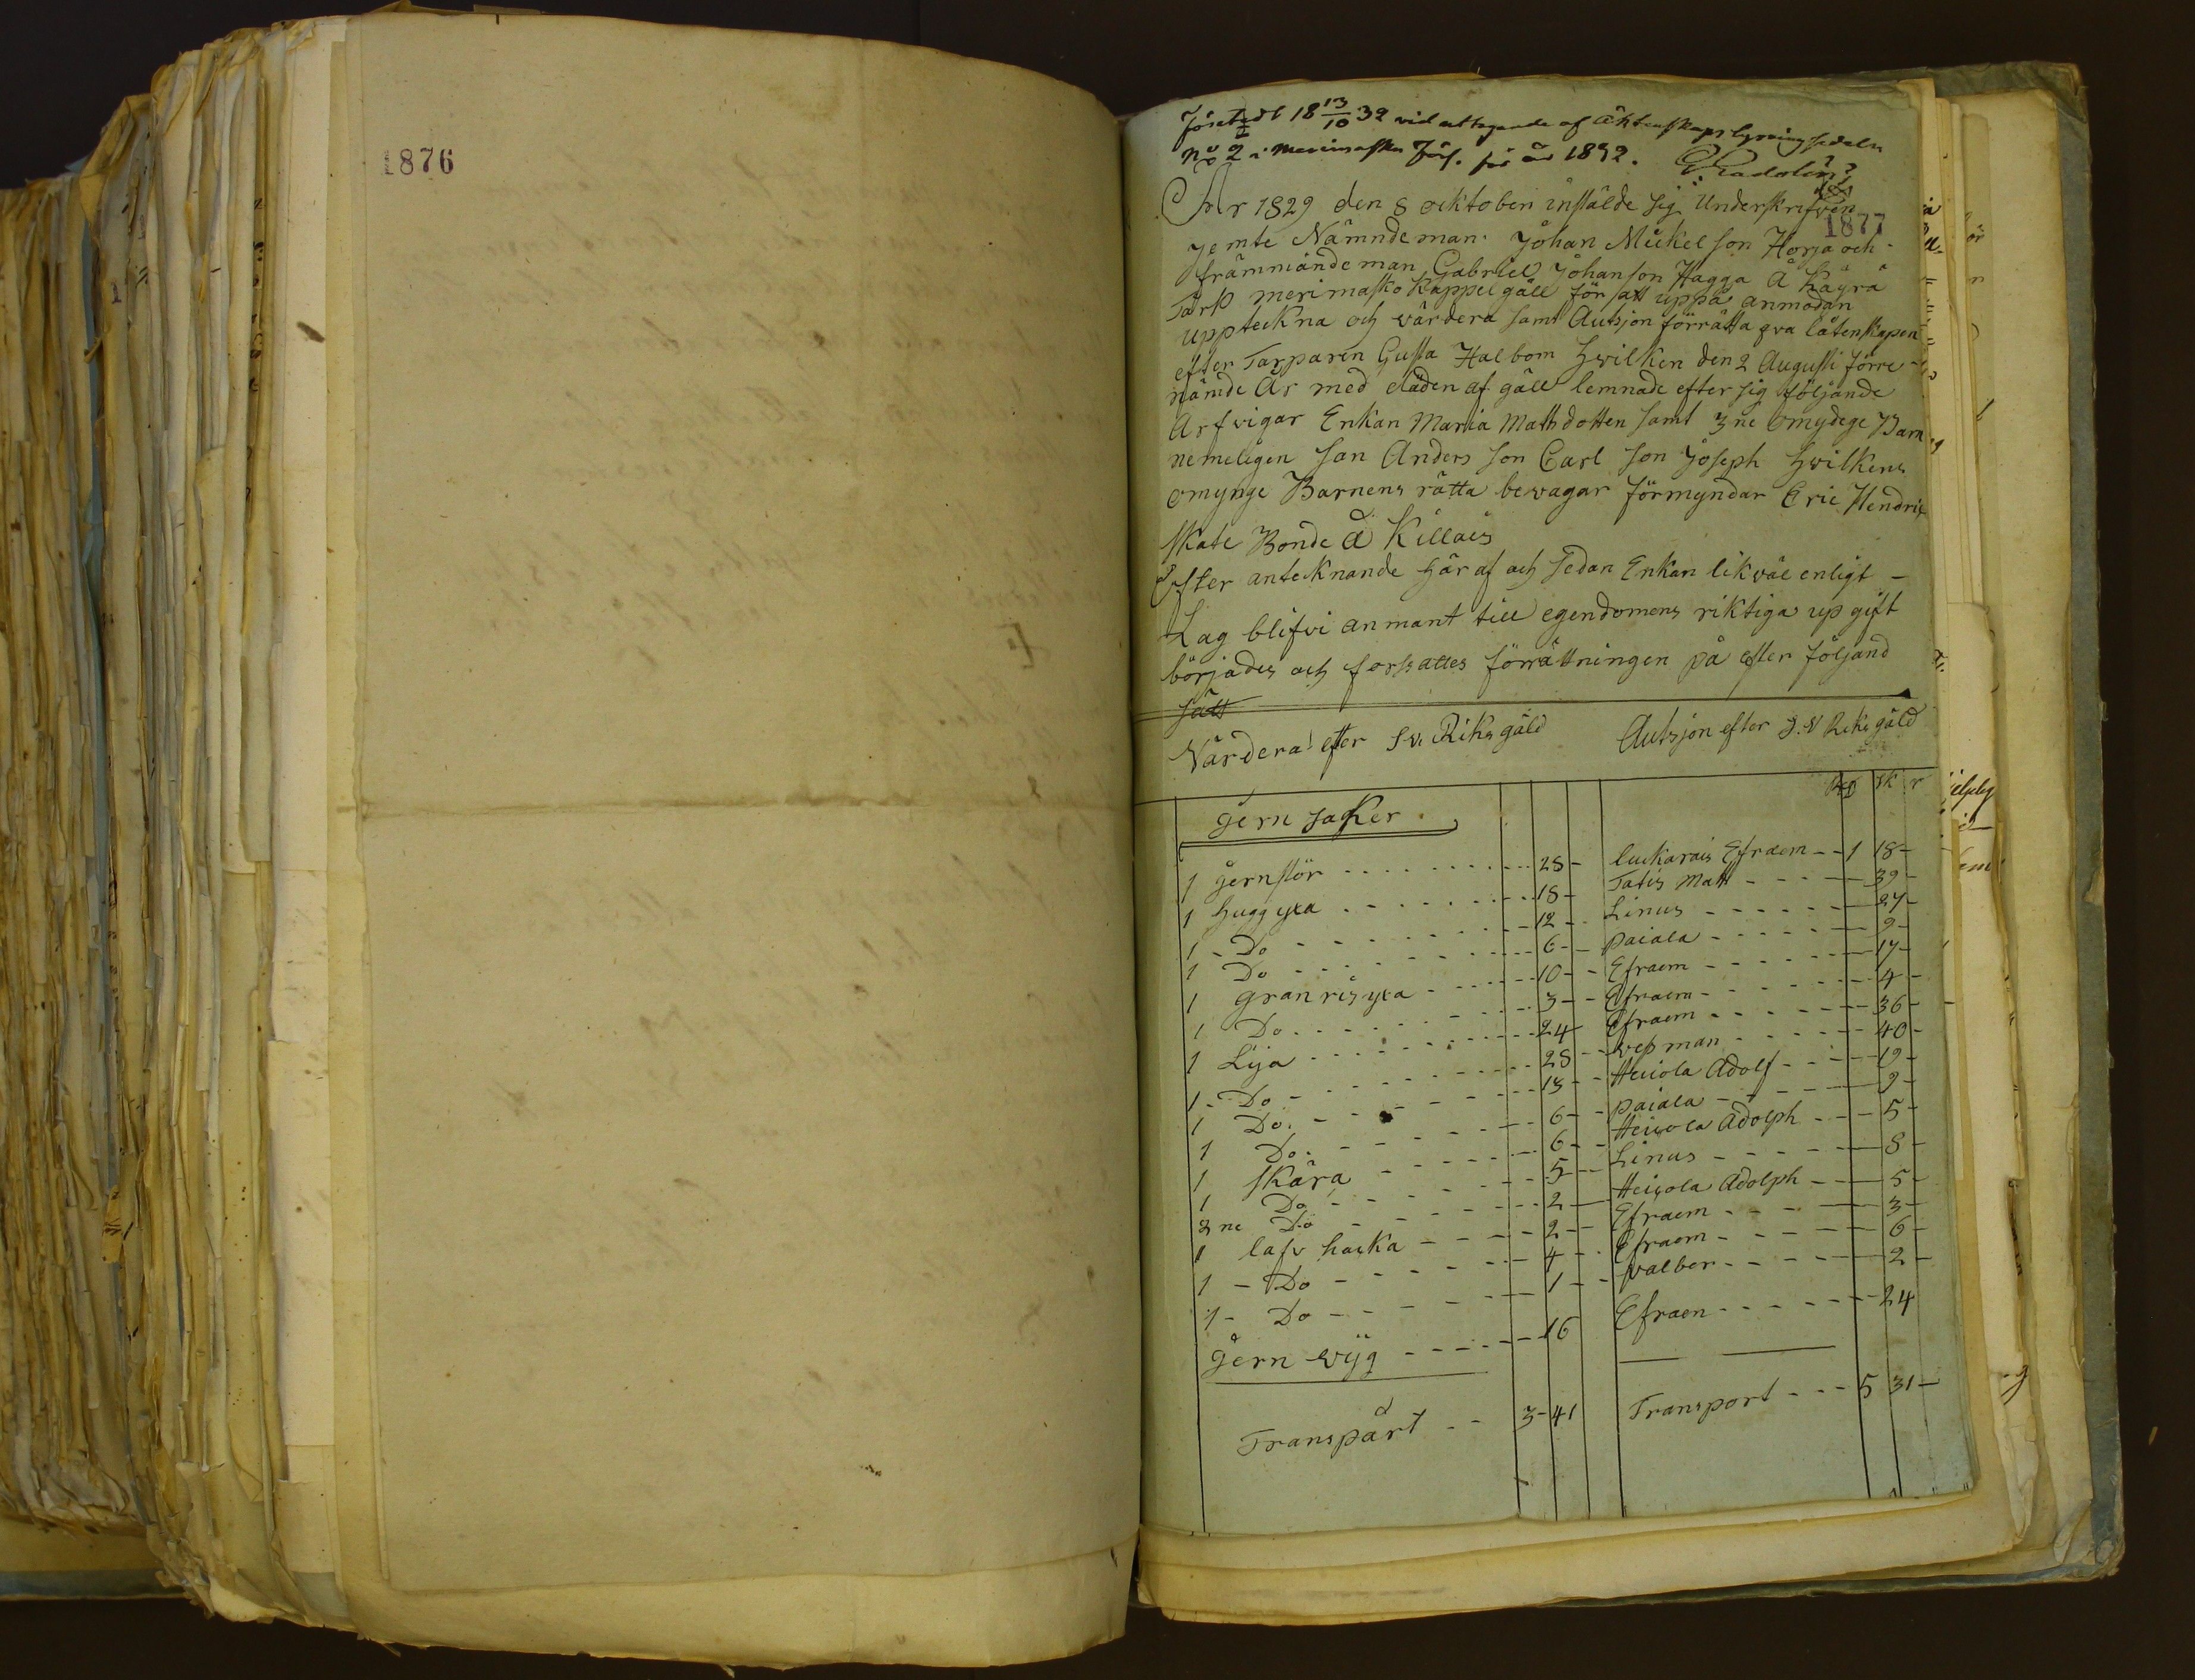 1876
1877
Företedt 18 13/10 32 vid uttagande af Äktenskaps lysningssedeln
No 2 i Merimasku Förs. för år 1832.
År 1829 den 8 ocktober instälde sig Underskrifven
jemte Nämndeman Johan Mickelson Horja och
främmande man Gabriel Johanson Hagga Å Käyrä
Tårp merimasko Kappelgäll för att uppå anmodan
uppteckna och värdera samt Autsjon förrätta qva låtenskapen
efter Tarparen Gusta Halbom hwilken den 2 Augusti förre-
nämde År med döden af gåll lemnade efter sig följande
Arfvigar Enkan Maria Mattsdotten samt 3ne omydege Barn
nemeligen son Anders son Carl son Joseph hwilkens
omynge Barnens rätta bevagar förmyndar Eric Hendrix
skate Bonde å Killais
Efter antecknande här af och sedan Enkan likväl enligt -
Lag blifvi anmant till egendomens riktiga up gift
börjades och forssattes förrättningen på efter följand
sätt
Värdera efter S.v. Riksgäld Autsjon efter S.V Riksgäld
Rd sk r
jern saker
1 jernstör 28 - luckarais Efraem - - 1 18 -
1 huggyxa 18 - Tatis Matt - - - 39 -
1 - Do 12 - Linus - - - 27 -
1 Do 6 - paiala - - - 9 -
1 granrisyxa 10 - Efraem - - - 17 -
1 Do 3 - Efraem - - - 4 -
1 Lija 24 Efraem - - - 36 -
1 - Do 28 - vepman - - - 40 -
1 Do 13 - Heiiola Adolf - - - 19 -
1 Do 6 - paiala - - - 9 -
1 skära 6 - Heiiola Adolph - - - 5 -
1 Do 5 - Linus - - - 8 -
2 ne Do 2 - Heiiola Adolph - - - 5 -
1 lafv hacka 2 - Efraem - - - 3 -
1 - Do 4 - Efraem - - - 6 -
1 - Do 1 - valber - - - 2 -
jern wijg 16 Efraen - - - 24
Transpårt - - 3 - 41 Transport - - - 5 31 -